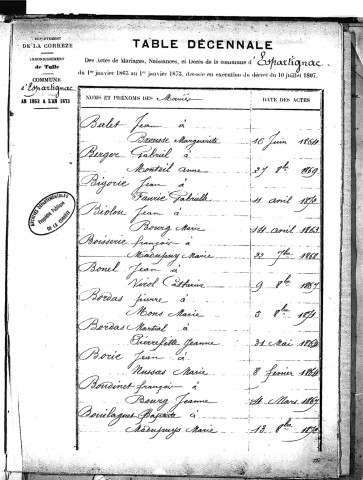 DÉPARTEMENT
DE LA CORRÈZE
ARRONDISSEMENT
de Tulle
COMMUNE
d'Espartignac
AN 1863 A L'AN 1873
TABLE DÉCENNALE
Des Actes de Mariages, Naissances, et Décès de la commune d'Espartignac
du 1er janvier 1863 au 1er janvier 1873, dressée en exécution du décret du 10 juillet 1807.
NOMS ET PRÉNOMS DES Mariés
DATE DES ACTES
Berlet Jean à
Marguerite 16 Juin 1864
Berger Gabriel à
Monteil Anne 27 8bre 1869
Bigorie Jean à
Faurie Gabrielle 11 avril 1870
Biolon Jean à
Bourg Marie 14 avril 1863
Boisserie françois à
Madupuy Marie 22 7bre 1868
Bonel Jean à
Virol 9 8bre 1867
Bordas pierre à
Mons Marie 5 8bre 1871
Bordas Martial à
Pierrefitte Jeanne 31 Mai 1864
Borie Jean à
Nussas Marie 8 fevrier 1864
Boudinet françois à
Bourg Jeanne 4 Mars 1867
Bouilaguet Baptiste à
Madupuys Marie 13 8bre 1870
ARCHIVES DÉPARTEMENTALES
Propriété Publique
DE LA CORRÈZE